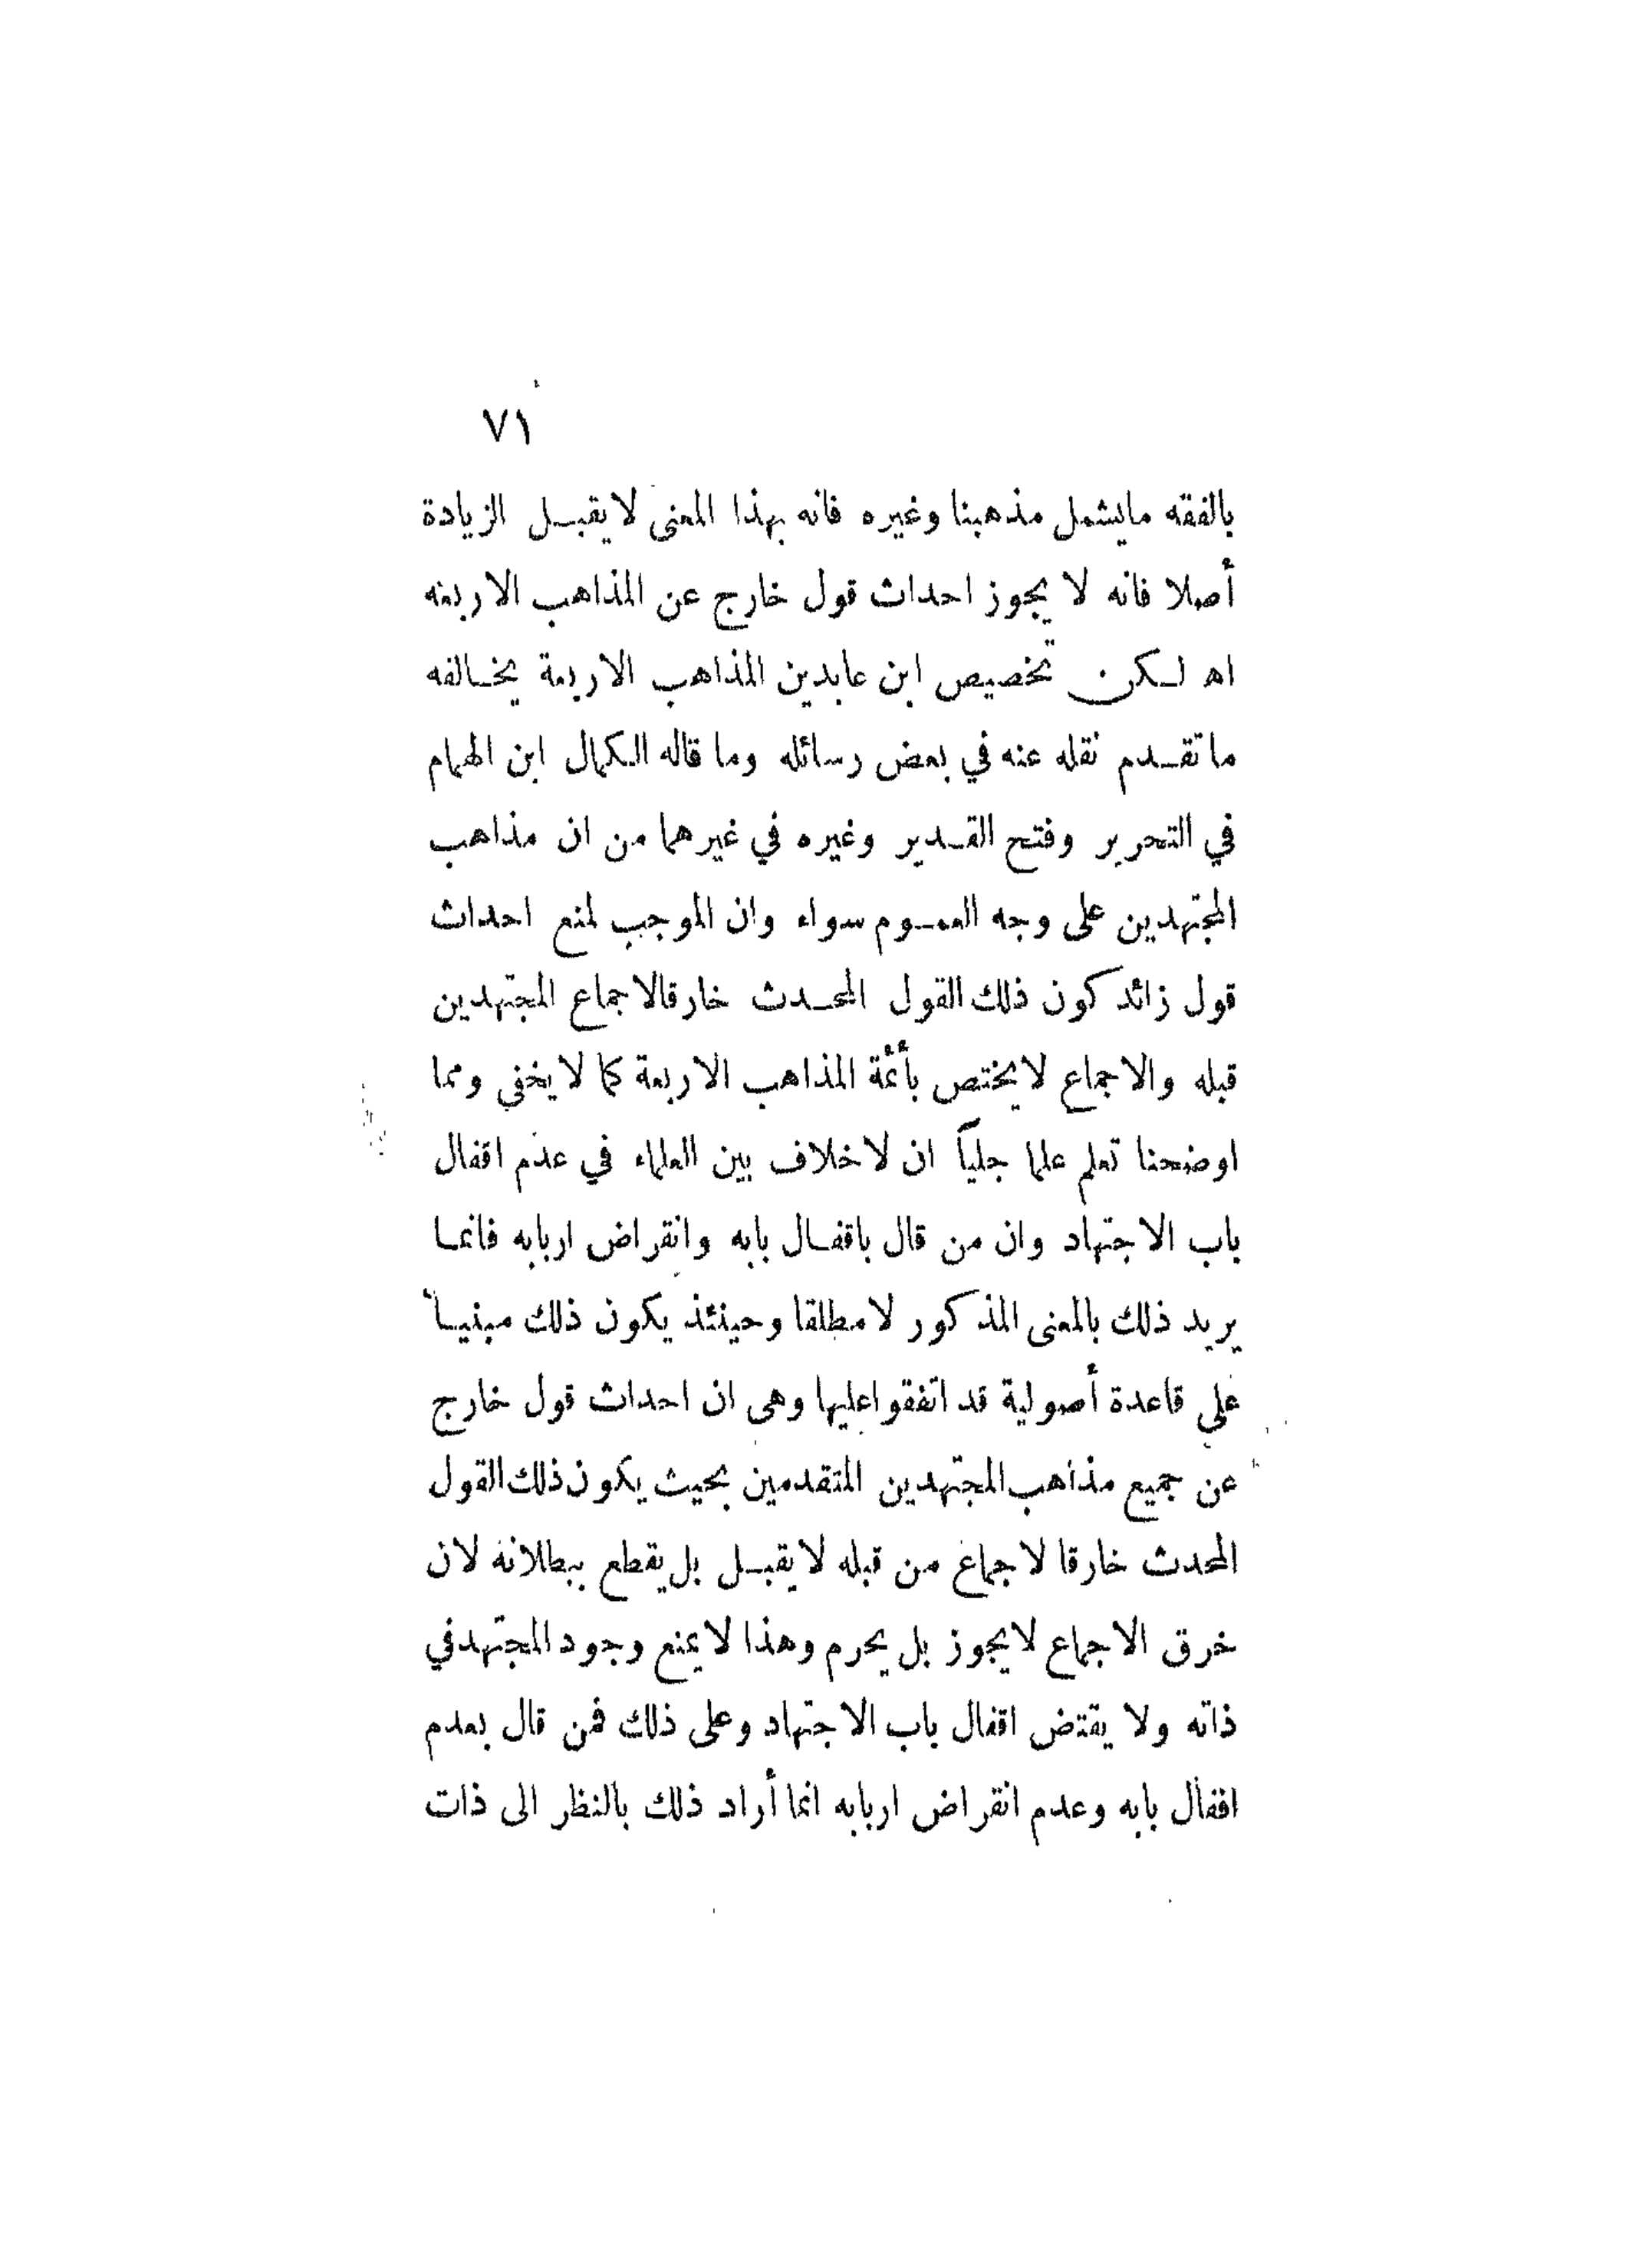 ٧١
بالفقه مايشمل مذهبنا وغيره فانه بهذا المعنى لا يقبل الزيادة
أصلا فانه لا يجوز احداث قول خارج عن المذاهب الاربعه
اه لكن تخصيص ابن عابدين المذاهب الاربعة يخالفه
ما تقدم نقله عنه في بعض رسائله وما قاله الكمال ابن الهمام
في التحرير وفتح القدير وغيره في غيرهما من ان مذاهب
المجتهدين على وجه العموم سواء وان الموجب لمنع احداث
قول زائد كون ذلك القول المحدث خارقا لاجماع المجتهدين
قبله والاجماع لا يختص بأئمة المذاهب الاربعة كما لا يخفي ومما
اوضحنا تعلم علما جلياً ان لا خلاف بين العلماء في عدم اقفال
باب الاجتهاد وان من قال باقفال بابه وانقراض اربابه فانما
يريد ذلك بالمعنى المذكور لا مطلقا وحينئذ يكون ذلك مبنياً
على قاعدة أصولية قد اتفقوا عليها وهى ان احداث قول خارج
عن جميع مذاهب المجتهدين المتقدمين بحيث يكون ذلك القول
المحدث خارقا لاجماع من قبله لا يقبل بل يقطع ببطلانه لان
خرق الاجماع لا يجوز بل يحرم وهذا لا يمنع وجود المجتهد في
ذاته ولا يقتض اقفال باب الاجتهاد وعلى ذلك فمن قال بعدم
اقفال بابه وعدم انقراض اربابه انما أراد ذلك بالنظر الى ذات